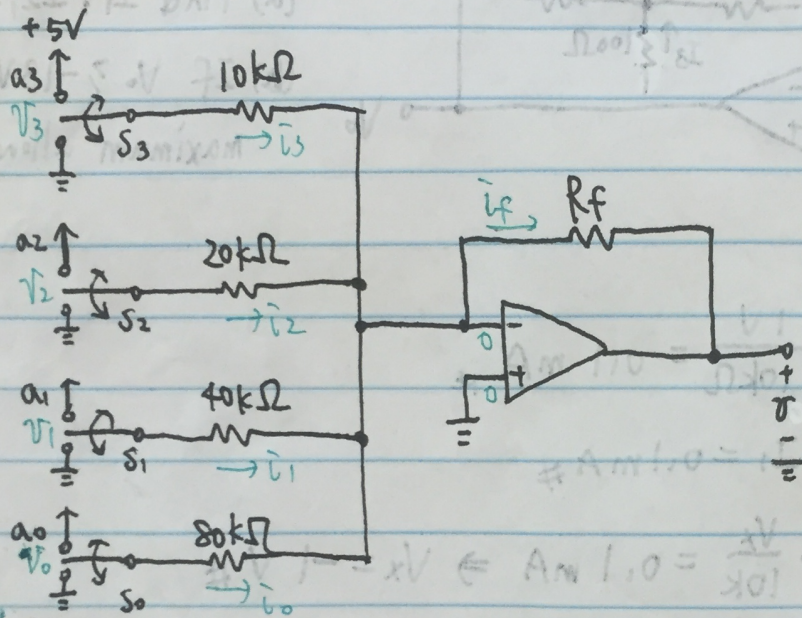 +5V
a3
V3
S3
10kΩ
→ i3
a2
V2
S2
20kΩ
→ i2
a1
V1
S1
40kΩ
→ i1
a0
V0
S0
80kΩ
→ i0
if
Rf
0
-
0
+
+
v
-